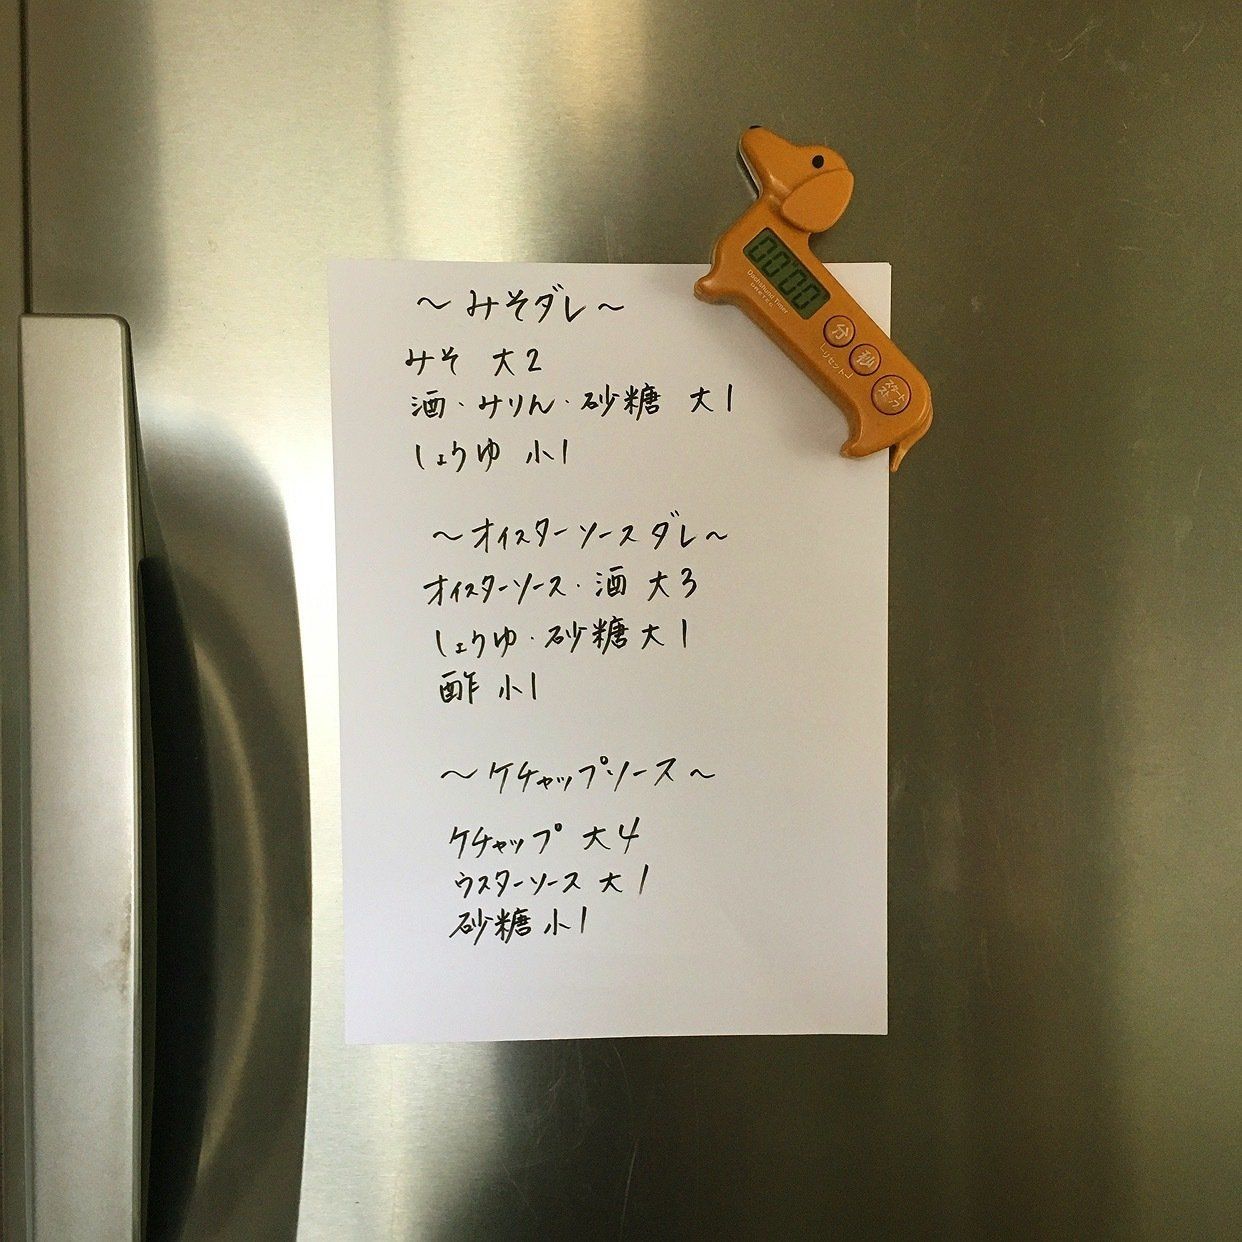 ～みそダレ～
みそ 大2
酒・みりん・砂糖 大1
しょうゆ 小1
～オイスターソースダレ～
オイスターソース・酒 大3
しょうゆ・砂糖大1
酢 小1
～ケチャップソース～
ケチャップ 大4
ウスターソース 大1
砂糖 小1
00:00
Dachshund Timer
DRETEC
分
秒
リセット
スタート
ストップ